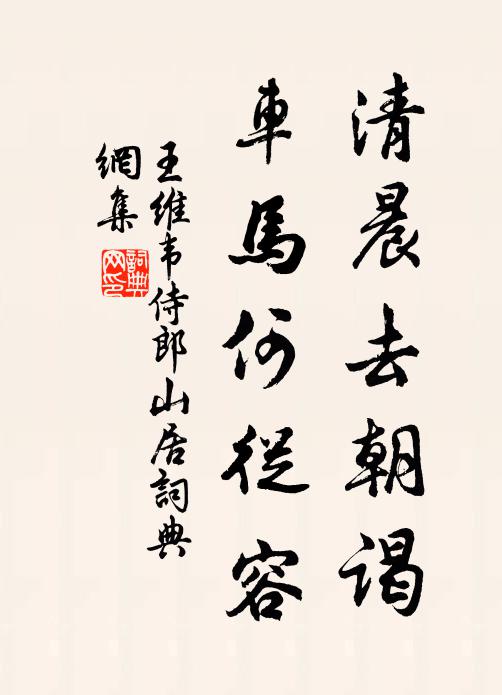 清晨去朝谒
車馬何從容
王維韦侍郎山居詞典
網集
詞典
网印